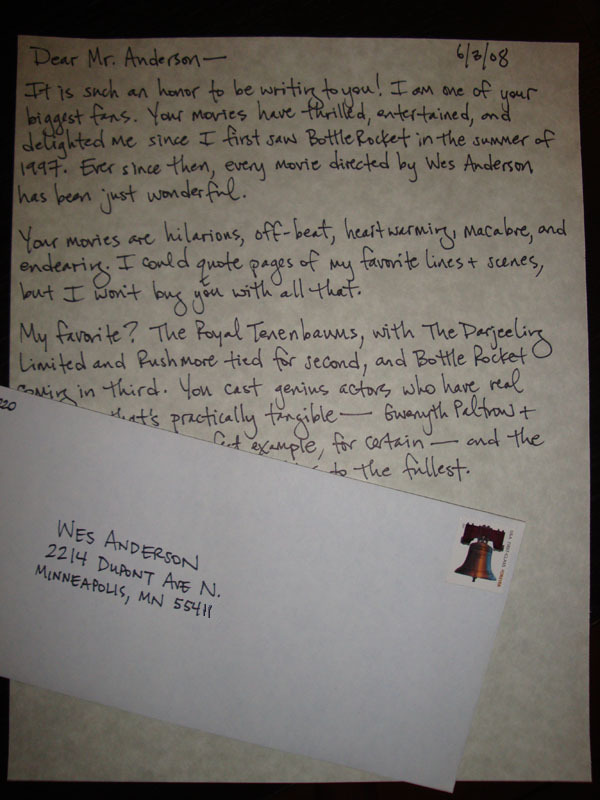 Dear Mr. Anderson—
6/3/08
It is such an honor to be writing to you! I am one of your
biggest fans. Your movies have thrilled, entertained, and
delighted me since I first saw Bottle Rocket in the summer of
1997. Ever since then, every movie directed by Wes Anderson
has been just wonderful.
Your movies are hilarious, off-beat, heartwarming, macabre, and
endearing. I could quote pages of my favorite lines + scenes,
but I won't bug you with all that.
My favorite? The Royal Tenenbaums, with The Darjeeling
Limited and Rushmore tied for second, and Bottle Rocket
coming in third. You cast genius actors who have real
that's practically tangible — Gwenyth Paltrow +
example, for certain — and the
to the fullest.
020
WES ANDERSON
2214 DUPONT AVE N.
MINNEAPOLIS, MN 55411